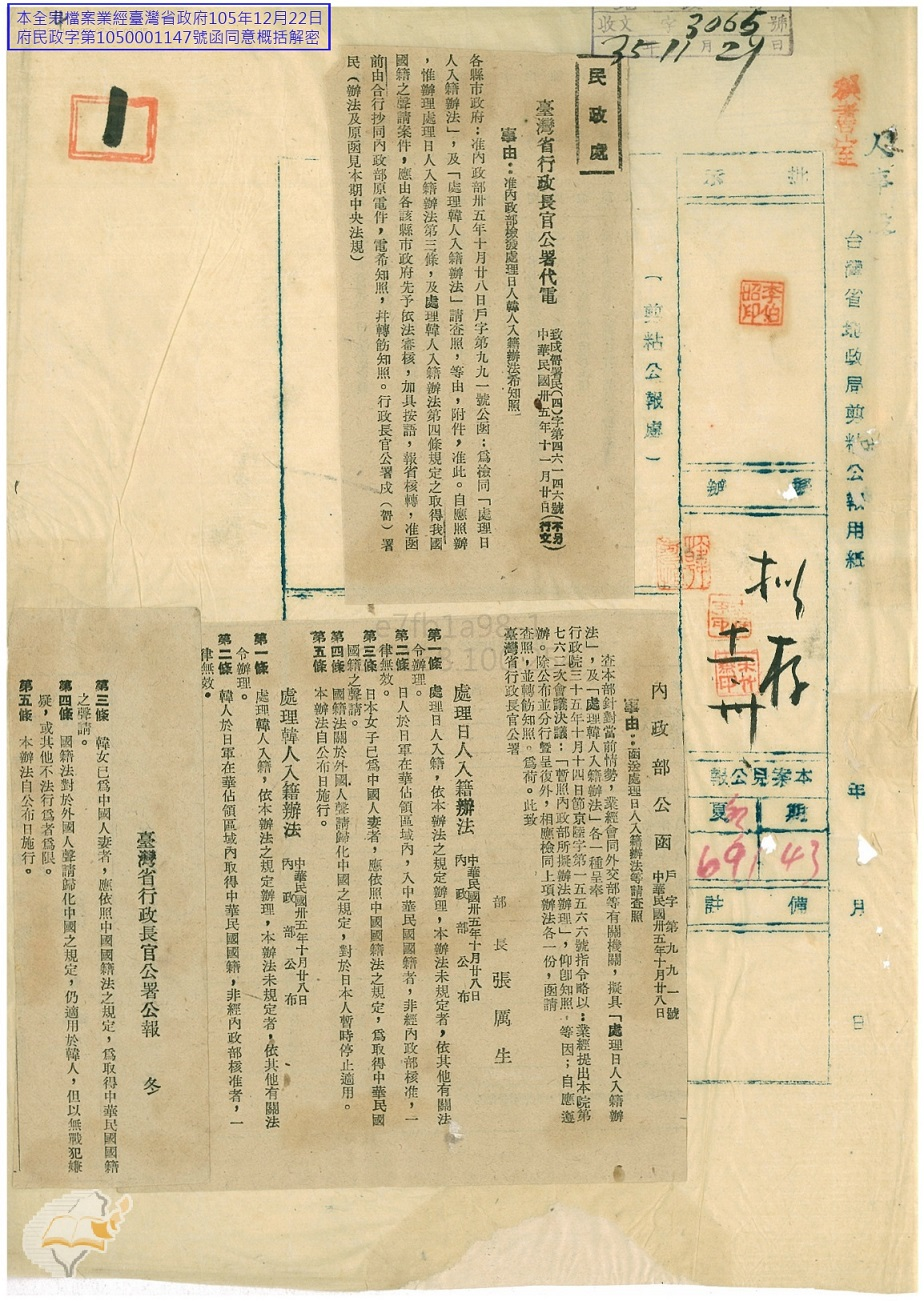 本全宗檔案業經臺灣省政府105年12月22日
府民政字第1050001147號函同意概括解密
收文 字 3065 號
35年11月29日
1
台灣省地政局剪粘公報用紙
年 月 日
批示
李伯昭印
擬辦
擬存
十一卅
本案見公報
期 夏
43 691
備註
（剪粘公報處）
民政處
臺灣省行政長官公署代電
致戌哿署民(四)字第四六一四六號
中華民國卅五年十一月廿日
(不另行文)
事由：准內政部檢發處理日人韓人入籍辦法希知照
各縣市政府：准內政部卅五年十月廿八日戶字第九九一號公函：爲檢同「處理日
人入籍辦法」，及「處理韓人入籍辦法」請查照，等由，附件，准此。自應照辦
，惟辦理處理日人入籍辦法第三條，及處理韓人入籍辦法第四條規定之取得我國
國籍之聲請案件，應由各該縣市政府先予依法審核，加具按語，報省核轉，准函
前由合行抄同內政部原電件，電希知照，幷轉飭知照。行政長官公署戌（哿）署
民（辦法及原函見本期中央法規）
內政部公函
戶字第九九一號
中華民國卅五年十月廿八日
事由：函送處理日人入籍辦法等請查照
查本部針對當前情勢，業經會同外交部等有關機關，擬具「處理日人入籍辦
法」，及「處理韓人入籍辦法」各一種呈奉
行政院三十五年十月十四日節京陸字第一五五六六號指令略以：業經提出本院第
七六二次會議決議：「暫照內政部所擬辦法辦理」，仰卽知照。等因；自應遵
辦。除公布並分行暨呈復外，相應檢同上項辦法各一份，函請
查照，並轉飭知照。爲荷。此致
臺灣省行政長官公署
部長 張厲生
處理日人入籍辦法
中華民國卅五年十月廿八日
內政部公布
第一條 處理日人入籍，依本辦法之規定辦理，本辦法未規定者，依其他有關法
令辦理。
第二條 日人於日軍在華佔領區域內，入中華民國國籍者，非經內政部核准，一
律無效。
第三條 日本女子已爲中國人妻者，應依照中國國籍法之規定，爲取得中華民國
國籍之聲請。
第四條 國籍法關於外國人聲請歸化中國之規定，對於日本人暫時停止適用。
第五條 本辦法自公布日施行。
處理韓人入籍辦法
中華民國卅五年十月廿八日
內政部公布
第一條 處理韓人入籍，依本辦法之規定辦理，本辦法未規定者，依其他有關法
令辦理。
第二條 韓人於日軍在華佔領區域內取得中華民國國籍，非經內政部核准者，一
律無效。
臺灣省行政長官公署公報 冬
第三條 韓女已爲中國人妻者，應依照中國國籍法之規定，爲取得中華民國國籍
之聲請。
第四條 國籍法對於外國人聲請歸化中國之規定，仍適用於韓人，但以無戰犯嫌
疑，或其他不法行爲者爲限。
第五條 本辦法自公布日施行。